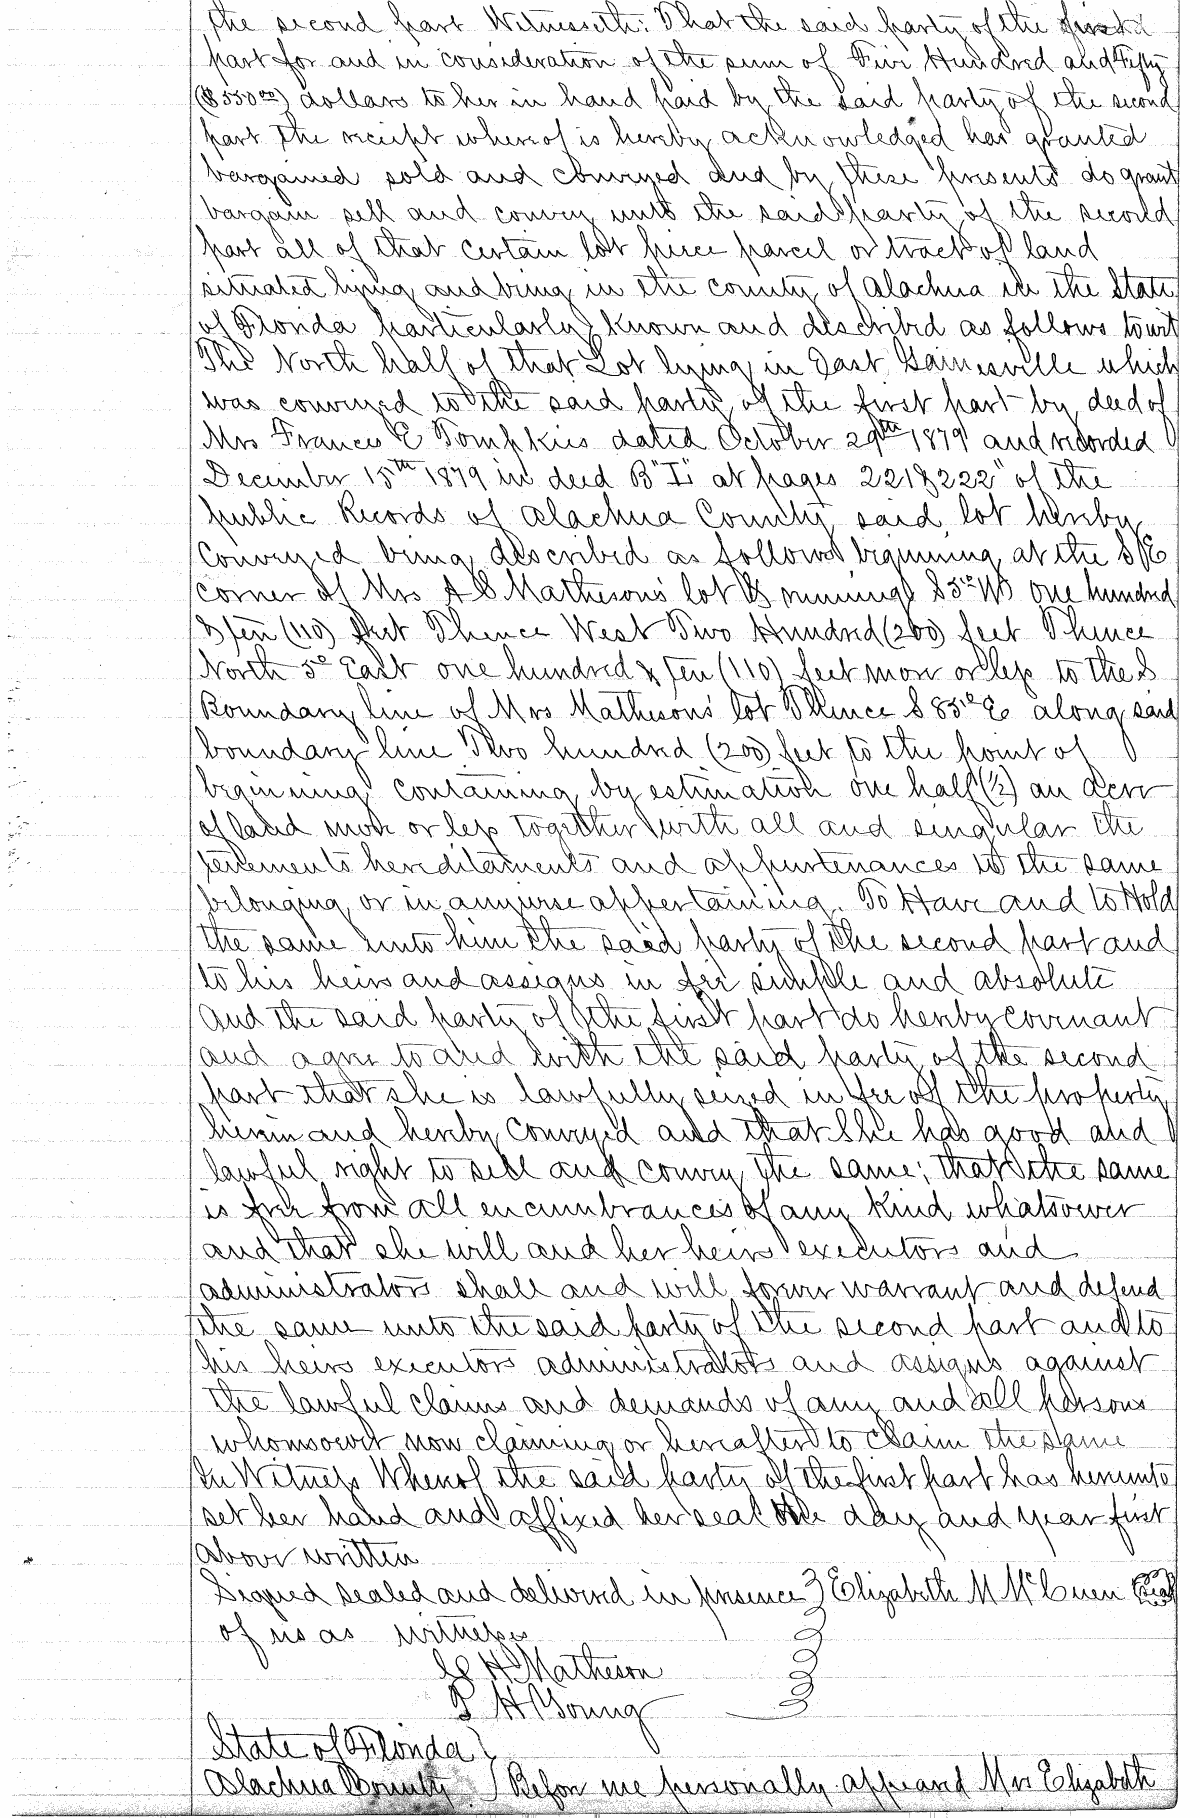 the second part Witnesseth: That the said party of the first
part for and in consideration of the sum of Five Hundred and Fifty
($550 00) dollars to her in hand paid by the said party of the second
part the receipt whereof is hereby acknowledged has granted
bargained sold and conveyed and by these presents do grant
bargain sell and convey unto the said party of the second
part all of that certain lot piece parcel or tract of land
situated lying and being in the county of Alachua in the State
of Florida particularly known and described as follows towit
The North half of that Lot lying in East Gainesville which
was conveyed to the said party of the first part by deed of
Mrs Frances E Tompkins dated October 29th 1879 and recorded
December 15th 1879 in deed B "L" at pages 221 & 222 of the
public Records of Alachua County said lot hereby
Conveyed being described as follows beginning at the S E
corner of Mrs A S Matheson's lot & running S 5° W one hundred
& ten (110) feet Thence West Two Hundred (200) feet Thence
North 5° East one hundred & ten (110) feet more or less to the S
Boundary line of Mrs Matheson's lot Thence S 85° E along said
boundary line Two hundred (200) feet to the point of
beginning containing by estimation one half (1/2) an acre
of land more or less together with all and singular the
tenements hereditaments and appurtenances to the same
belonging or in anywise appertaining. To Have and to Hold
the same unto him the said party of the second part and
to his heirs and assigns in fee simple and absolute
And the said party of the first part do hereby covenant
and agree to and with the said party of the second
part that she is lawfully seized in fee of the property
herein and hereby conveyed and that she has good and
lawful right to sell and convey the same; that the same
is free from all encumbrances of any kind whatsoever
and that she will and her heirs executors and
administrators shall and will forever warrant and defend
the same unto the said party of the second part and to
his heirs executors administrators and assigns against
the lawful claims and demands of any and all persons
whomsoever now claiming or hereafter to claim the same
In Witness Whereof the said party of the first part has hereunto
set her hand and affixed her seal the day and year first
above written
Signed sealed and delivered in presence } Elizabeth M McCuen (Seal)
of us as witnesses
H Matheson
H Young
State of Florida }
Alachua County } Before me personally appeared Mrs Elizabeth